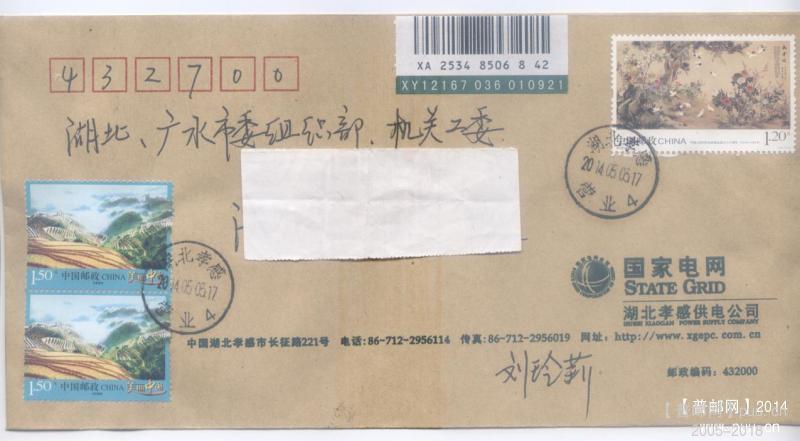 XA 2534 8506 8 42
XY12167 036 010921
432700
湖北、广水市委组织部、机关工委
中国邮政 CHINA
1.20元
湖北孝感
2014.05.05.17
营业 4
1.50元 中国邮政 CHINA
美丽中国
湖北孝感
2014.05.05.17
营业 4
1.50元 中国邮政 CHINA
美丽中国
国家电网
STATE GRID
湖北孝感供电公司
HUBEI XIAOGAN POWER SUPPLY COMPANY
中国湖北孝感市长征路221号 电话:86-712-2956114 传真:86-712-2956019 网址:http://www.xgepc.com.cn
刘玲莉
邮政编码:432000
【普邮网】2014